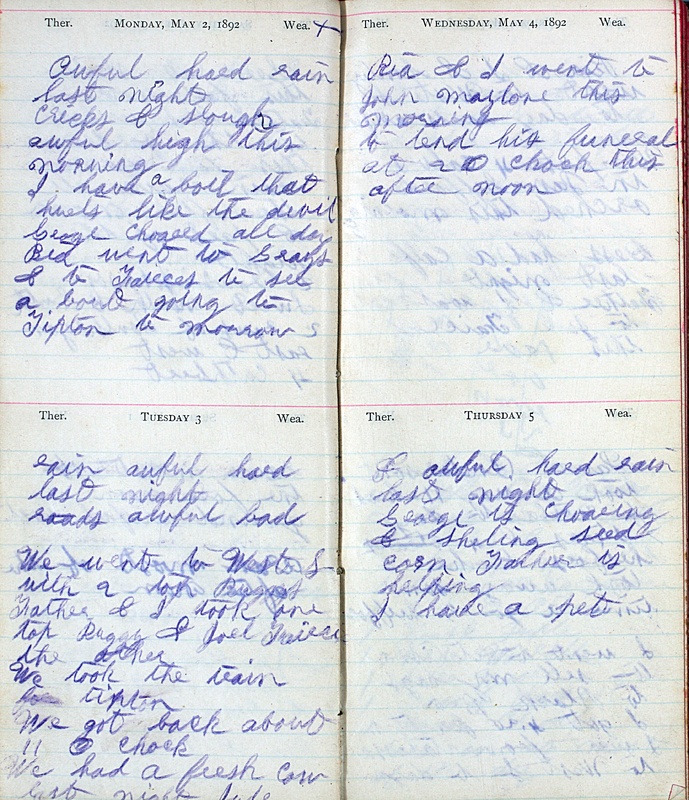 Ther. MONDAY, MAY 2, 1892 Wea. x
Awful hard rain
last night
Crices & slough
awful high this
morning
I have a boil that
huels like the devil
George choared all day
Red went to Grays
& to Frieces to see
a bout going to
Tipton to morrow
Ther. TUESDAY 3 Wea.
rain awful hard
last night
roads awful bad
We went to West L
with 2 top Buggys
Father & I took one
top Buggy & Joel Friece
the other
We took the train
to tipton
We got back about
11 O Chock
We had a fresh Cow
last night
Ther. WEDNESDAY, MAY 4, 1892 Wea.
Ria & I went to
John Maylone this
morning
to tend his funeral
at 2 O Chock this
after noon
Ther. THURSDAY 5 Wea.
& awful hard rain
last night
George is Choaring
& Sheling seed
corn Father is
helping
I have a